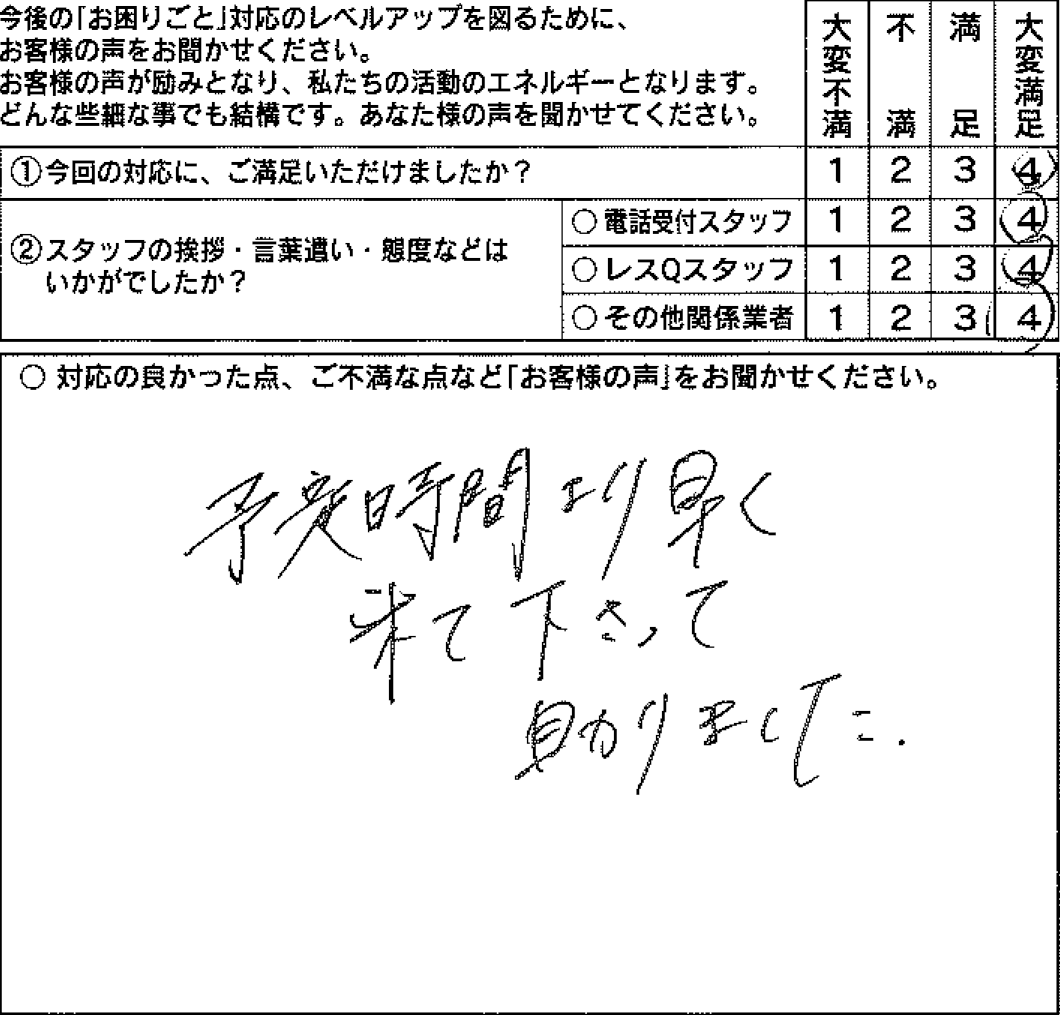 今後の「お困りごと」対応のレベルアップを図るために、
お客様の声をお聞かせください。
お客様の声が励みとなり、私たちの活動のエネルギーとなります。
どんな些細な事でも結構です。あなた様の声を聞かせてください。
大変不満 不満 満足 大変満足
①今回の対応に、ご満足いただけましたか？ 1 2 3 4
②スタッフの挨拶・言葉遣い・態度などは
いかがでしたか？
○電話受付スタッフ 1 2 3 4
○レスQスタッフ 1 2 3 4
○その他関係業者 1 2 3 4
○ 対応の良かった点、ご不満な点など「お客様の声」をお聞かせください。
予定時間より早く
来て下さって
助かりました.